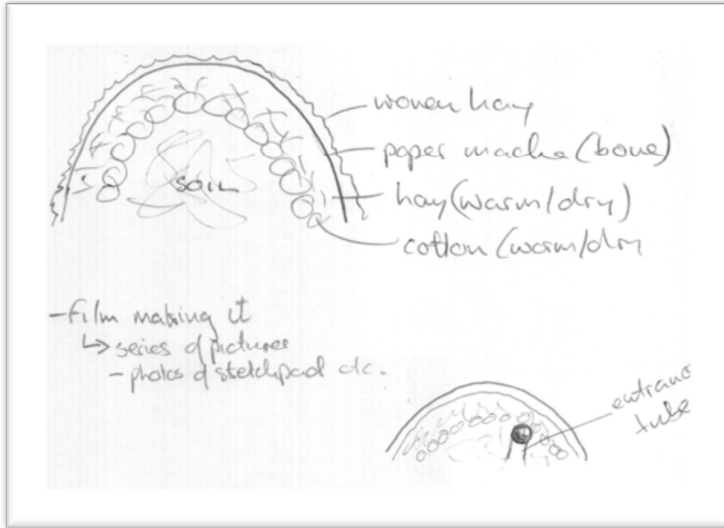 woven hay
paper mache (bone)
hay (warm/dry)
cotton (warm/dry
soil
- film making it
↳ series of pictures
- photos of sketchpad etc.
entrance
tube